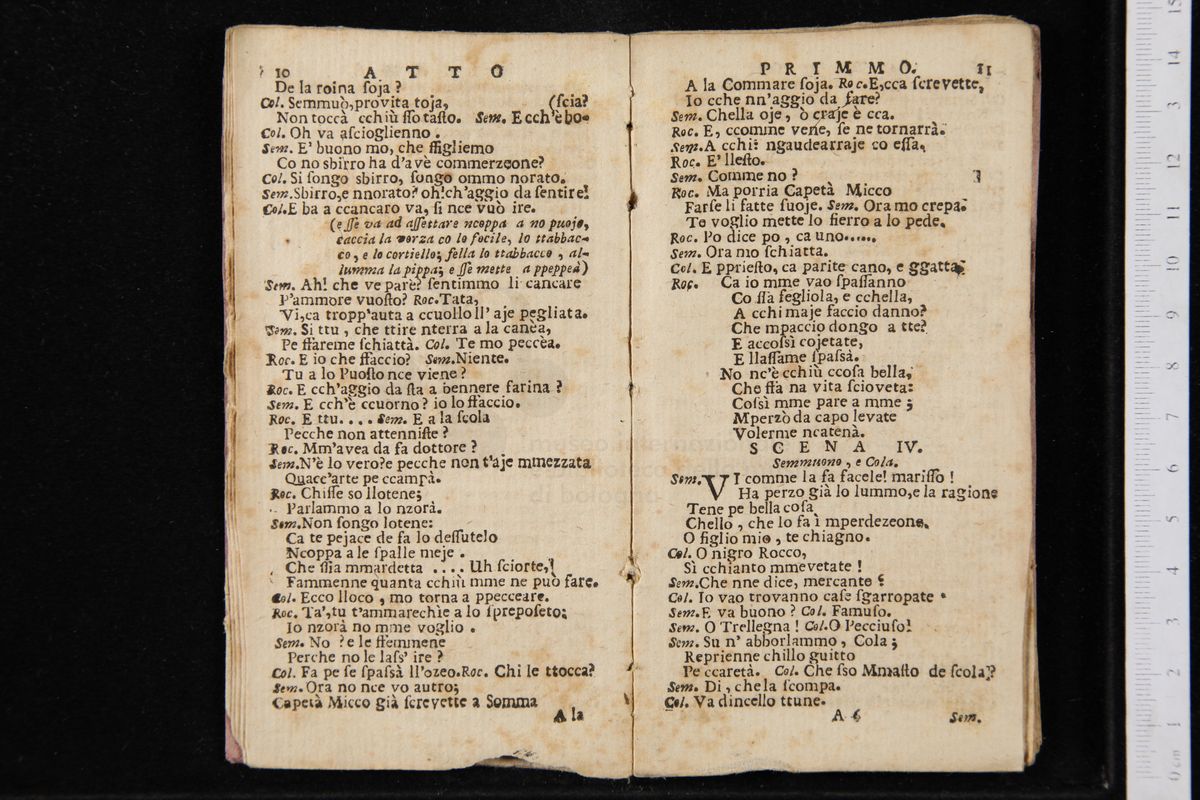 10 A T T O
De la roina ſoja ?
Col. Semmuò, pro vita toja, (ſcia?
Non toccà cchiù ſſo taſto. Sem. E cch'è bo-
Col. Oh va aſcioglienno .
Sem. E' buono mo, che ffigliemo
Co no sbirro ha d'avè commerzeone?
Col. Si ſongo sbirro, ſongo ommo norato.
Sem. Sbirro, e nnorato? oh! ch'aggio da ſentire!
Col. E ba a ccancaro va, ſi nce vuò ire.
(eſſe va ad aſſettare ncoppa a no puojo,
caccia la vorza co lo focile, lo ttabbac-
co, e lo cortiello; fella lo ttabbacco , al-
lumma la pippa; e ſſe mette a ppeppeà)
Sem. Ah! che ve pare? ſentimmo li cancare
P'ammore vuoſto? Roc. Tata,
Vi, ca tropp'auta a ccuollo ll' aje pegliata.
Sem. Si ttu , che ttire nterra a la canèa,
Pe ffareme ſchiattà. Col. Te mo peccèa.
Roc. E io che ffaccio? Sem. Niente.
Tu a lo Puoſto nce viene ?
Roc. E cch'aggio da ſta a bennere farina ?
Sem. E cch'è ccuorno ? io lo ffaccio.
Roc. E ttu.... Sem. E a la ſcola
Pecche non attenniſte ?
Roc. Mm'avea da fa dottore ?
Sem. N'è lo vero? e pecche non t'aje mmezzata
Quacc'arte pe ccampà.
Roc. Chiſſe so llotene;
Parlammo a lo nzorà.
Sem. Non ſongo lotene:
Ca te pejace de fa lo deſſutelo
Ncoppa a le ſpalle meje .
Che ſſia mmardetta .... Uh ſciorte,
Fammenne quanta cchiù mme ne può fare.
Col. Ecco lloco , mo torna a ppecceare.
Roc. Ta', tu t'ammarechìe a lo ſpropoſeto;
Io nzorà no mme voglio .
Sem. No ? e le ffemmene
Perche no le laſs' ire ?
Col. Fa pe ſe ſpaſsà ll'ozeo. Roc. Chi le ttocca?
Sem. Ora no nce vo autro;
Capetà Micco già ſcrevette a Somma
A la
P R I M M O. 11
A la Commare ſoja. Roc. E, cca ſcrevette,
Io cche nn'aggio da fare?
Sem. Chella oje , ò craje è cca.
Roc. E, ccomme vene, ſe ne tornarrà.
Sem. A cchi? ngaudearraje co eſſa.
Roc. E' lleſto.
Sem. Comme no ?
Roc. Ma porria Capetà Micco
Farſe li fatte ſuoje. Sem. Ora mo crepa.
Te voglio mette lo fierro a lo pede.
Roc. Po dice po , ca uno......
Sem. Ora mo ſchiatta.
Col. E pprieſto, ca parite cano, e ggatta.
Roc. Ca io mme vao ſpaſſanno
Co ſſà fegliola, e cchella,
A cchi maje faccio danno?
Che mpaccio dongo a tte?
E accoſsì cojetate,
E llaſſame ſpaſsà.
No nc'è cchiù ccoſa bella,
Che ffà na vita ſcioveta:
Coſsì mme pare a mme ;
Mperzò da capo levate
Volerme ncatenà.
S C E N A IV.
Semmuono , e Cola.
Sem. VI comme la fa facele! mariſſo !
Ha perzo già lo lummo, e la ragione
Tene pe bella coſa
Chello , che lo fa ì mperdezeone.
O figlio mio , te chiagno.
Col. O nigro Rocco,
Sì cchianto mmevetate !
Sem. Che nne dice, mercante ?
Col. Io vao trovanno caſe ſgarropate .
Sem. E va buono ? Col. Famuſo.
Sem. O Trellegna ! Col. O Pecciuſo!
Sem. Su n' abborlammo , Cola ;
Reprienne chillo guitto
Pe ccaretà. Col. Che ſso Mmaſto de ſcola?
Sem. Di , che la ſcompa.
Col. Va dincello ttune.
A 6 Sem.